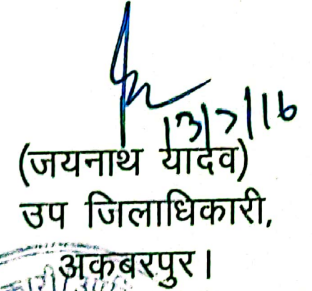 13/7/16
(जयनाथ यादव)
उप जिलाधिकारी,
अकबरपुर।